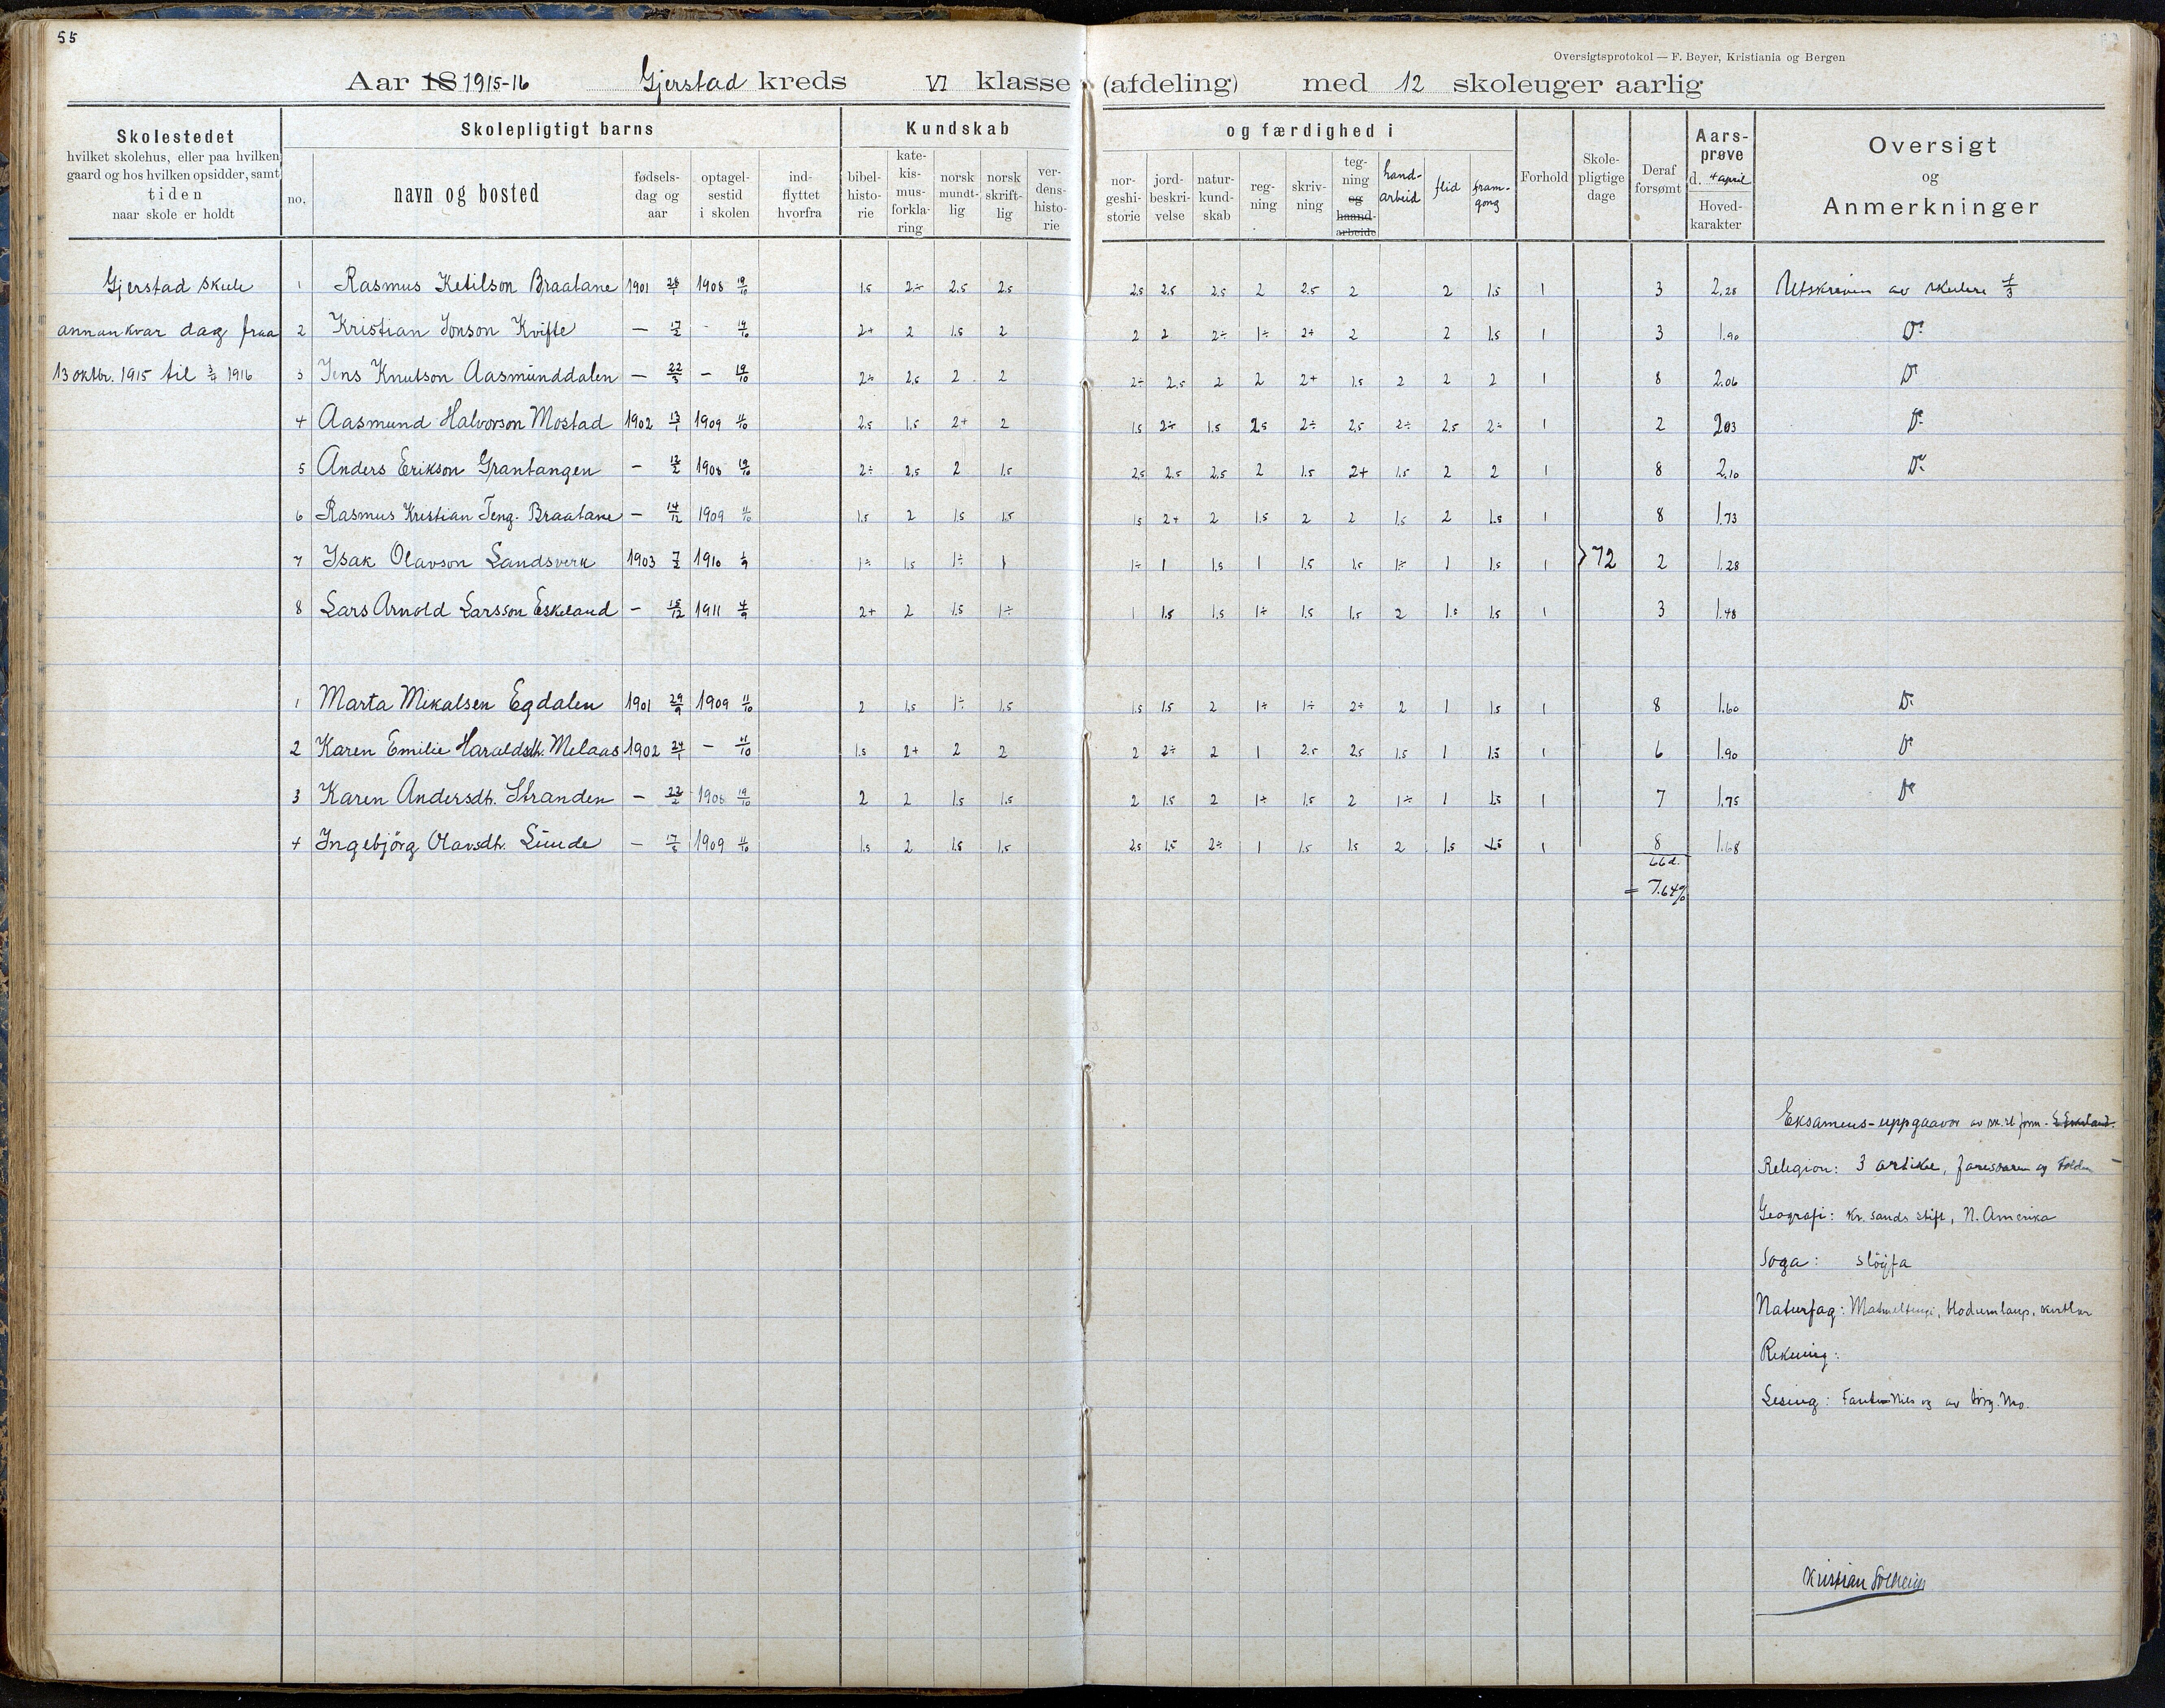 55
Oversigtsprotokol — F. Beyer, Kristiania og Bergen
Aar 18 1915-16 Gjerstad kreds VI klasse (afdeling) med 12 skoleuger aarlig
Skolestedet
hvilket skolehus, eller paa hvilken
gaard og hos hvilken opsidder, samt
tiden
naar skole er holdt
Skolepligtigt barns
no.
navn og bosted
fødsels-
dag og
aar
optagel-
sestid
i skolen
ind-
flyttet
hvorfra
Kundskab
bibel-
histo-
rie
kate-
kis-
mus-
forkla-
ring
norsk
mundt-
lig
norsk
skrift-
lig
ver-
dens-
histo-
rie
og færdighed i
nor-
geshi-
storie
jord-
beskri-
velse
natur-
kund-
skab
reg-
ning
skriv-
ning
teg-
ning
og
haand-
arbeide
hand-
arbeid
flid
fram-
gong
Forhold
Skole-
pligtige
dage
Deraf
forsømt
Aars-
prøve
d. 4 april
Hoved-
karakter
Oversigt
og
Anmerkninger
Gjerstad skule 1 Rasmus Ketilson Braatane 1901 28/1 1908 19/10 1.5 2÷ 2.5 2.5 2.5 2.5 2.5 2 2.5 2 2 1.5 1 3 2.28 Utskriven av skulen
annankvar dag fraa 2 Kristian Jonson Kvifte — 17/2 - 19/10 2+ 2 1.5 2 2 2 2÷ 1÷ 2+ 2 2 1.5 1 3 1.90 Do
13 oktbr. 1915 til 3/4 1916 3 Jens Knutson Aasmunddalen — 22/3 — 19/10 2÷ 2.5 2 2 2÷ 2.5 2 2 2+ 1.5 2 2 2 1 8 2.06 Do
4 Aasmund Halvorson Mostad 1902 13/1 1909 11/10 2.5 1.5 2+ 2 1.5 2÷ 1.5 2.5 2÷ 2.5 2÷ 2.5 2÷ 1 2 2.03 Do
5 Anders Erikson Grantangen — 12/2 1908 19/10 2÷ 2.5 2 1.5 2.5 2.5 2.5 2 1.5 2+ 1.5 2 2 1 8 2.10 Do
6 Rasmus Kristian Teng. Braatane — 14/12 1909 11/10 1.5 2 1.5 1.5 1.5 2+ 2 1.5 2 2 1.5 2 1.5 1 8 1.73
7 Isak Olavson Landsverk 1903 7/2 1910 1/9 1÷ 1.5 1÷ 1 1÷ 1 1.5 1 1.5 1.5 1÷ 1 1.5 1 72 2 1.28
8 Lars Arnold Larsson Eskeland — 15/12 1911 4/9 2+ 2 1.5 1÷ 1 1.5 1.5 1÷ 1.5 1.5 2 1.5 1.5 1 3 1.48
1 Marta Mikalsen Egdalen 1901 29/9 1909 11/10 2 1.5 1÷ 1.5 1.5 1.5 2 1÷ 1÷ 2÷ 2 1 1.5 1 8 1.60 Do
2 Karen Emilie Haraldsdh. Melaas 1902 24/1 — 11/10 1.5 2+ 2 2 2 2÷ 2 1 2.5 2.5 1.5 1 1.5 1 6 1.90 Do
3 Karen Andersdh. Stranden — 22/2 1908 19/10 2 2 1.5 1.5 2 1.5 2 1÷ 1.5 2 1÷ 1 1.5 1 7 1.75 Do
4 Ingebjörg Olavsdh. Lunde — 17/5 1909 11/10 1.5 2 1.5 1.5 2.5 1.5 2÷ 1 1.5 1.5 2 1.5 1.5 1 8 1.68
66 d.
= 7.64%
Eksamens-uppgaavor av
Religion: 3 artikel, og
Geografi: Kr.sands stift, N. Amerika
Soga: slöyfa
Naturfag: Matmeltingi, blodumlaup, kertlar
Rekning:
Lesing: og av
Kristian Solheim